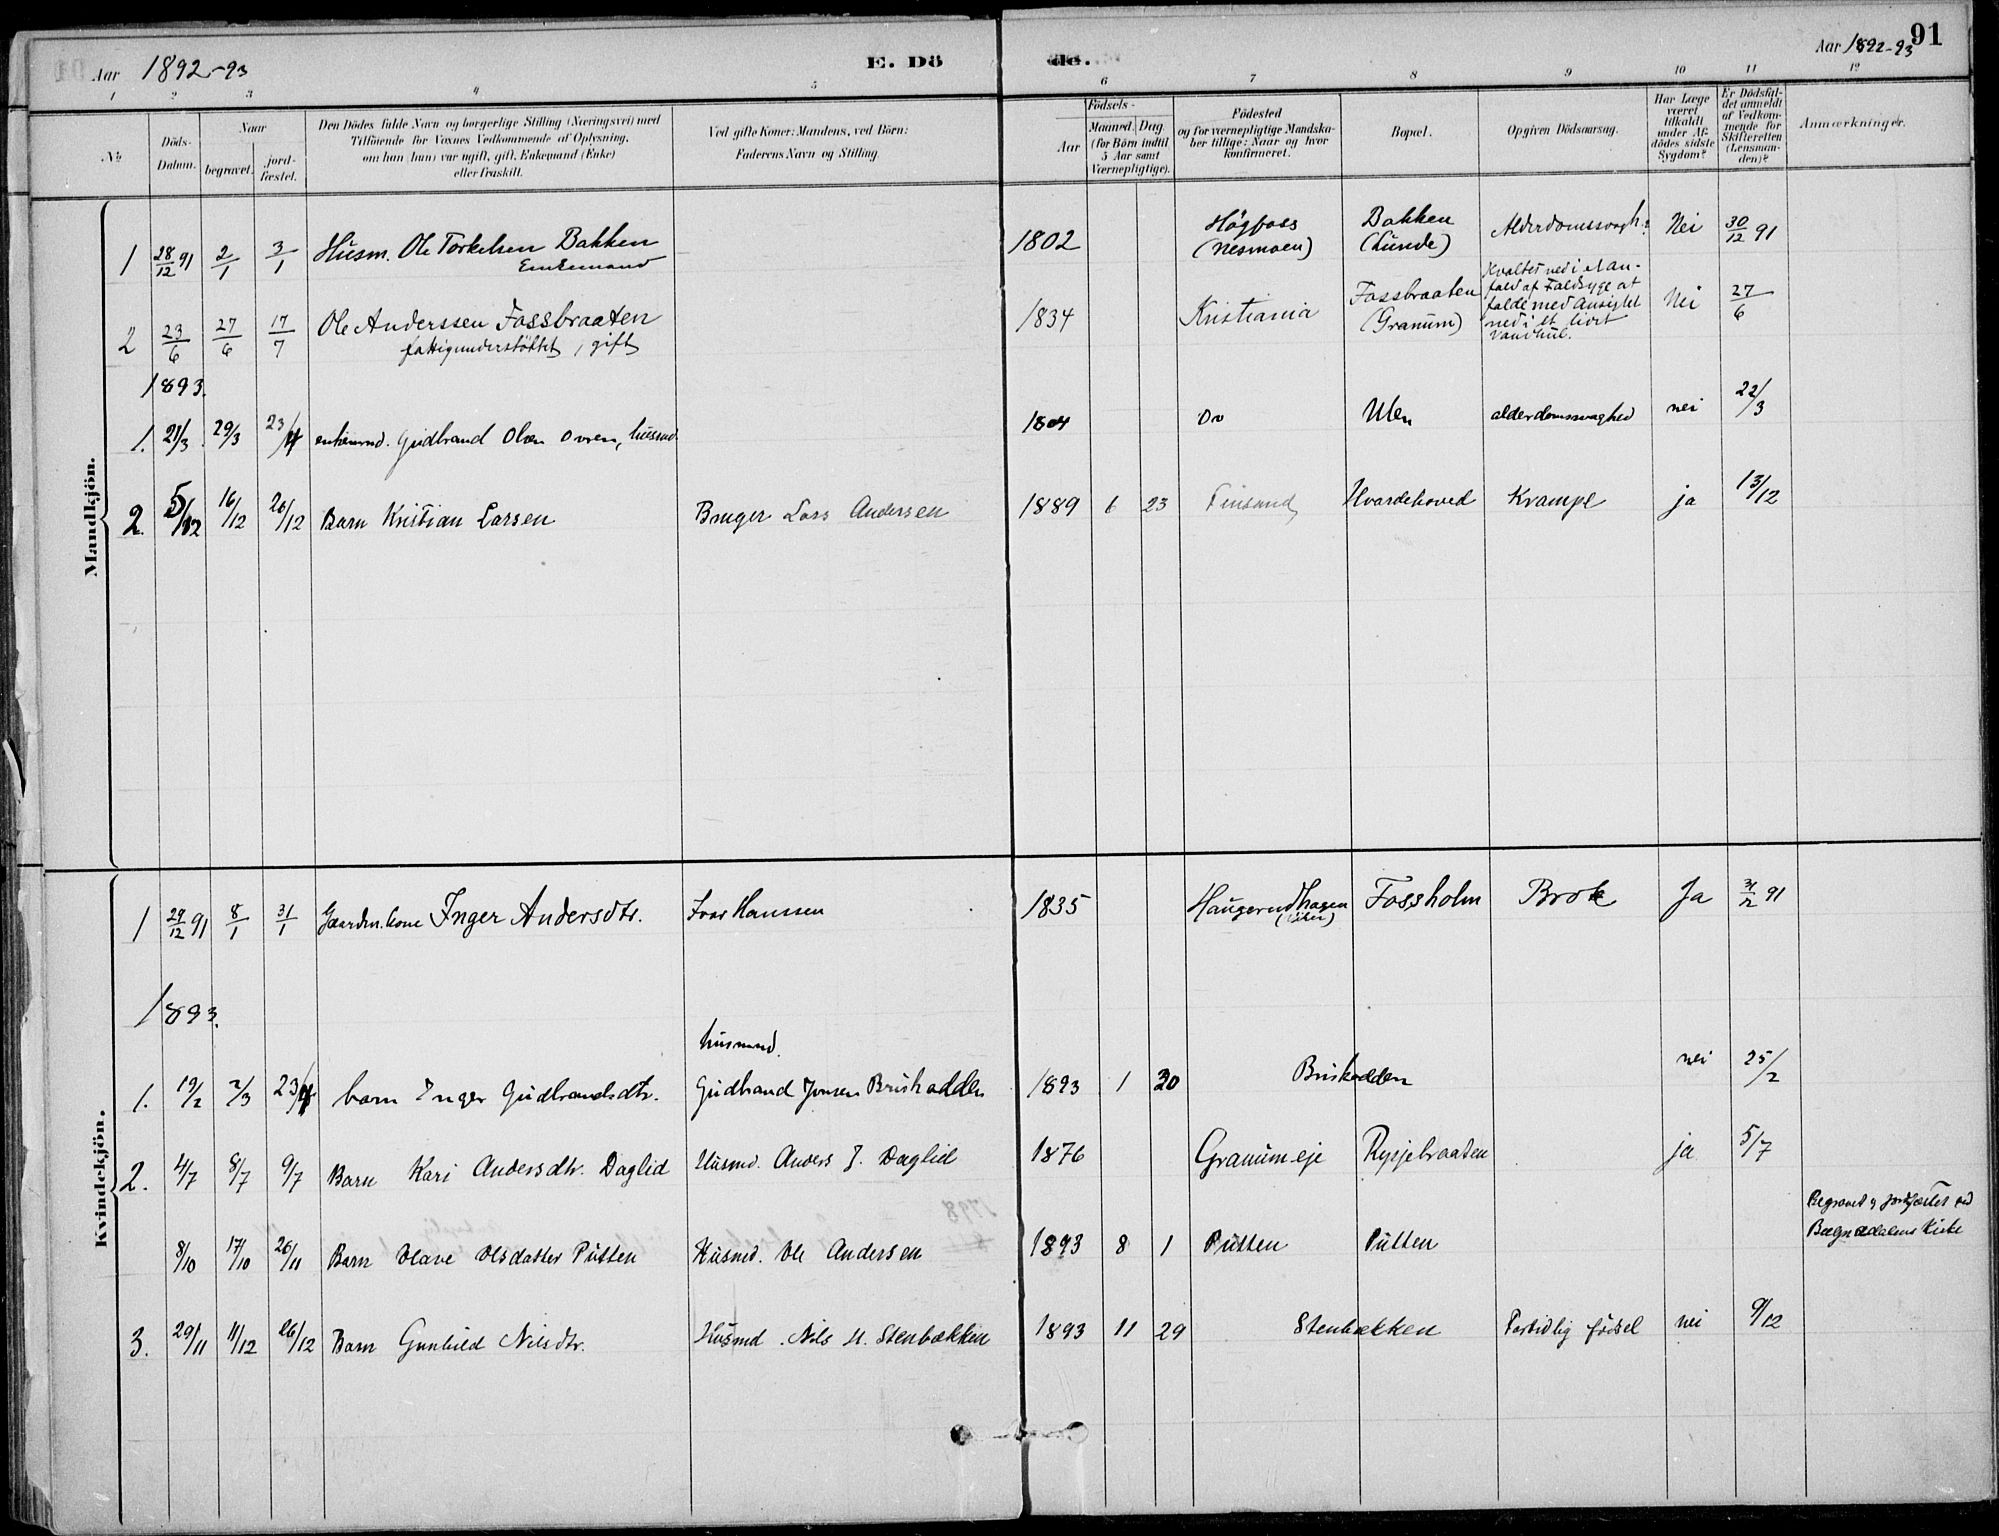 Aar 1892-93
E. Dö
de.
Aar 1892-93
91
1 2 3 4 5 6 7 8 9 10 11 12
No
Döds-Datum.
Naar
begravet.
jord-fæstet.
Den Dödes fulde Navn og borgerlige Stilling (Næringsvei) med
Tilföiende for Voxnes Vedkommende af Oplysning,
om han (hun) var ugift, gift, Enkemand (Enke)
eller fraskilt.
Ved gifte Koner: Mandens, ved Börn:
Faderens Navn og Stilling.
Födsels-
Aar
Maaned. Dag
(for Börn indtil
5 Aar samt
Værnepligtige).
Födested
og for værnepligtige Mandska-
ber tillige: Naar og hvor
konfirmeret.
Bopæl.
Opgiven Dödsaarsag.
Har Læge
været
tilkaldt
under Af-
dödes sidste
Sygdom?
Er Dödsfal-
det anmeldt
af Vedkom-
mende for
Skifteretten
(Lensman-
den)?
Anmærkninger.
Mandkjön.
1 28/12 91 2/1 3/1 Husm. Ole Torkelsen Bakken 1802 Högfoss Bakken Alderdomssvagh. Nei 30/12 91
Enkemand (Nesmoen) (Lunde)
2 23/6 27/6 17/7 Ole Anderssen Fossbraaten 1834 Kristiania Fossbraaten Nei 27/6
fattigunderstöttet, gift (Granum)
Kvaltes ved i et An-
fald af Faldsyge at
falde med Ansigtet
ned i et lidet
Vandhul.
1893.
1. 21/3 29/3 23/4 enkemd. Gudbrand Olsen Ovren, husmd. 1804 Ov Ulen alderdomssvaghed nei 22/3
2. 5/12 16/12 26/12 Barn Kristian Larsen Bruger Lars Andersen 1889 6 23 Finsand Hvardehoved Krampe ja 13/12
Kvindekjön.
1 29/12 91 8/1 31/1 Gaardm. kone Inger Andersdtr. Ivar Hanssen 1835 Haugerudhagen Fossholm Brok Ja 31/12 91
1893.
husmand.
1. 19/2 2/3 23/4 barn Inger Gudbrandsdtr. Gudbrand Jonsen Briskodden 1893 1 30 Briskodden nei 25/2
2. 4/7 8/7 9/7 Barn Kari Andersdtr. Daglid Husmd. Anders J. Daglid 1876 Granum-eje Rypjebraaten ja 5/7
8/10 17/10 26/11 Barn Olave Olsdatter Pütten Husmd. Ole Andersen 1893 8 1 Pütten Pütten
Begravet og jordfæstet ved
Bægnadalens Kirke
3. 29/11 11/12 26/12 Barn Gunhild Nilsdtr. Husmd. Nils H. Stenbækken 1893 11 29 Stenbækken Fortidlig födsel nei 9/12